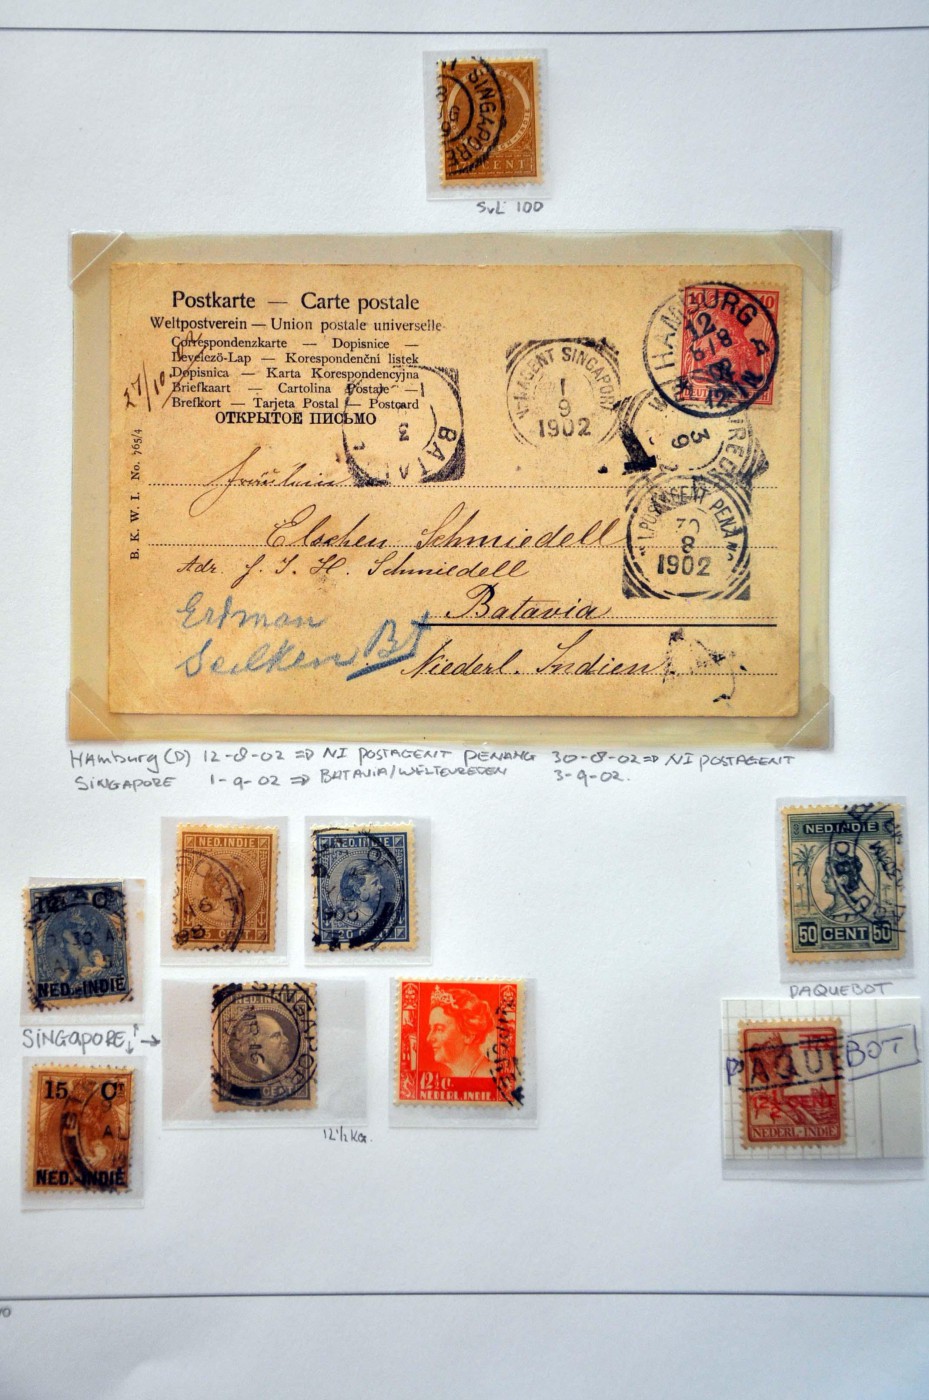 SINGAPORE
CENT
SvL 100
Postkarte — Carte postale
Weltpostverein — Union postale universelle
Correspondenzkarte — Dopisnice —
Levelező-Lap — Korespondenční listek
Dopisnica — Karta Korespondencyjna
Briefkaart — Cartolina Postale —
Brefkort — Tarjeta Postal — Postcard
ОТКРЫТОЕ ПИСЬМО
27/10
B. K. W. I. No. 765/4
10 10
HAMBURG
12
6/8
BATAVIA
3
N.I.AGENT SINGAPORE
1
9
1902
3
9
N.I.POSTAGENT PENANG
30
8
1902
T
Fräulein
Elschen Schmiedell
Adr. J. S. H. Schmiedell
Batavia
Niederl. Indien
Erdman
Seilken Bt
Hamburg (D) 12-8-02 => NI POSTAGENT PENANG 30-8-02 => NI POSTAGENT
SINGAPORE 1-9-02 => BATAVIA/WELTEVREDEN 3-9-02.
NED.INDIE
CENT
NED.INDIE
20 CENT
NED.INDIE
50 CENT 50
PAQUEBOT
NED.-INDIË
SINGAPORE
15 Ct
NED.-INDIË
NED.INDIE
SINGAPORE
CENT
12½ Ka.
12½ c.
NEDERL. INDIE
PAQUEBOT
12½ CENT
NEDERL-INDIE